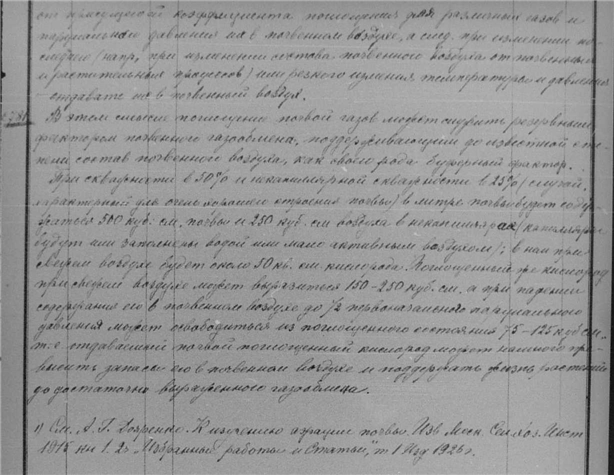 от присущего коэффициента поглощения для различных газов и
парциального давления их в почвенном воздухе, а след. при изменении по-
следних (напр. при изменении состава почвенного воздуха от почвенных
и растительных процессов) или резкого изменен. температуры и давления
— отдавать их в почвенный воздух.
В этом смысле поглощение почвой газов может служить резервным
фактором почвенного газообмена, поддерживающим до известной сте-
пени состав почвенного воздуха, как своего рода буферный фактор.
При скважности в 50% и некапиллярной скважности в 25% (случай,
характерный для очень хорошего строения почвы) в литре почвы будет содер-
жаться 500 куб. см. почвы и 250 куб. см воздуха в некапиллярах (капилляры
будут или заполнены водой или мало активным воздухом); в нем при
свежем воздухе будет около 50 кб. см кислорода. Поглощенный же кислород
при свежем воздухе может выразиться 150-250 куб. см. а при падении
содержания его в почвенном воздухе до 1/2 первоначального парциального
давления может освободиться из поглощенного состояния 75-125 куб см.
т.е. отдаваемый почвой поглощенный кислород может намного пре-
высить запасы его в почвенном воздухе и поддержать жизнь растений
до достаточно выраженного газообмена.
1) См. А.Г. Дояренко. К изучению аэрации почвы. Изв Моск. Сел. Хоз. Инст
1915 кн 1. 2) "Избранные работы и Статьи", т I Изд 1926 г.